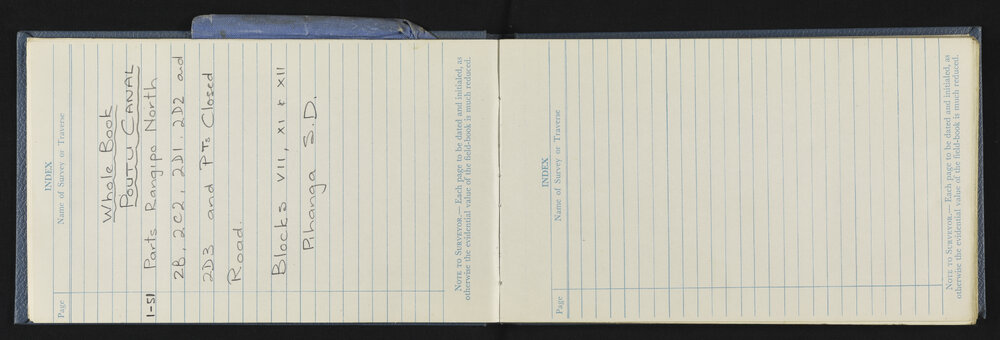 INDEX
Page Name of Survey or Traverse
Whole Book
POUTU CANAL
1-51 Parts Rangipo North
2B, 2C2, 2D1, 2D2 and
2D3 and PTs Closed
Road.
Blocks VII, XI & XII
Pihanga S.D.
NOTE TO SURVEYOR.— Each page to be dated and initialed, as
otherwise the evidential value of the field-book is much reduced.
INDEX
Page Name of Survey or Traverse
NOTE TO SURVEYOR.— Each page to be dated and initialed, as
otherwise the evidential value of the field-book is much reduced.